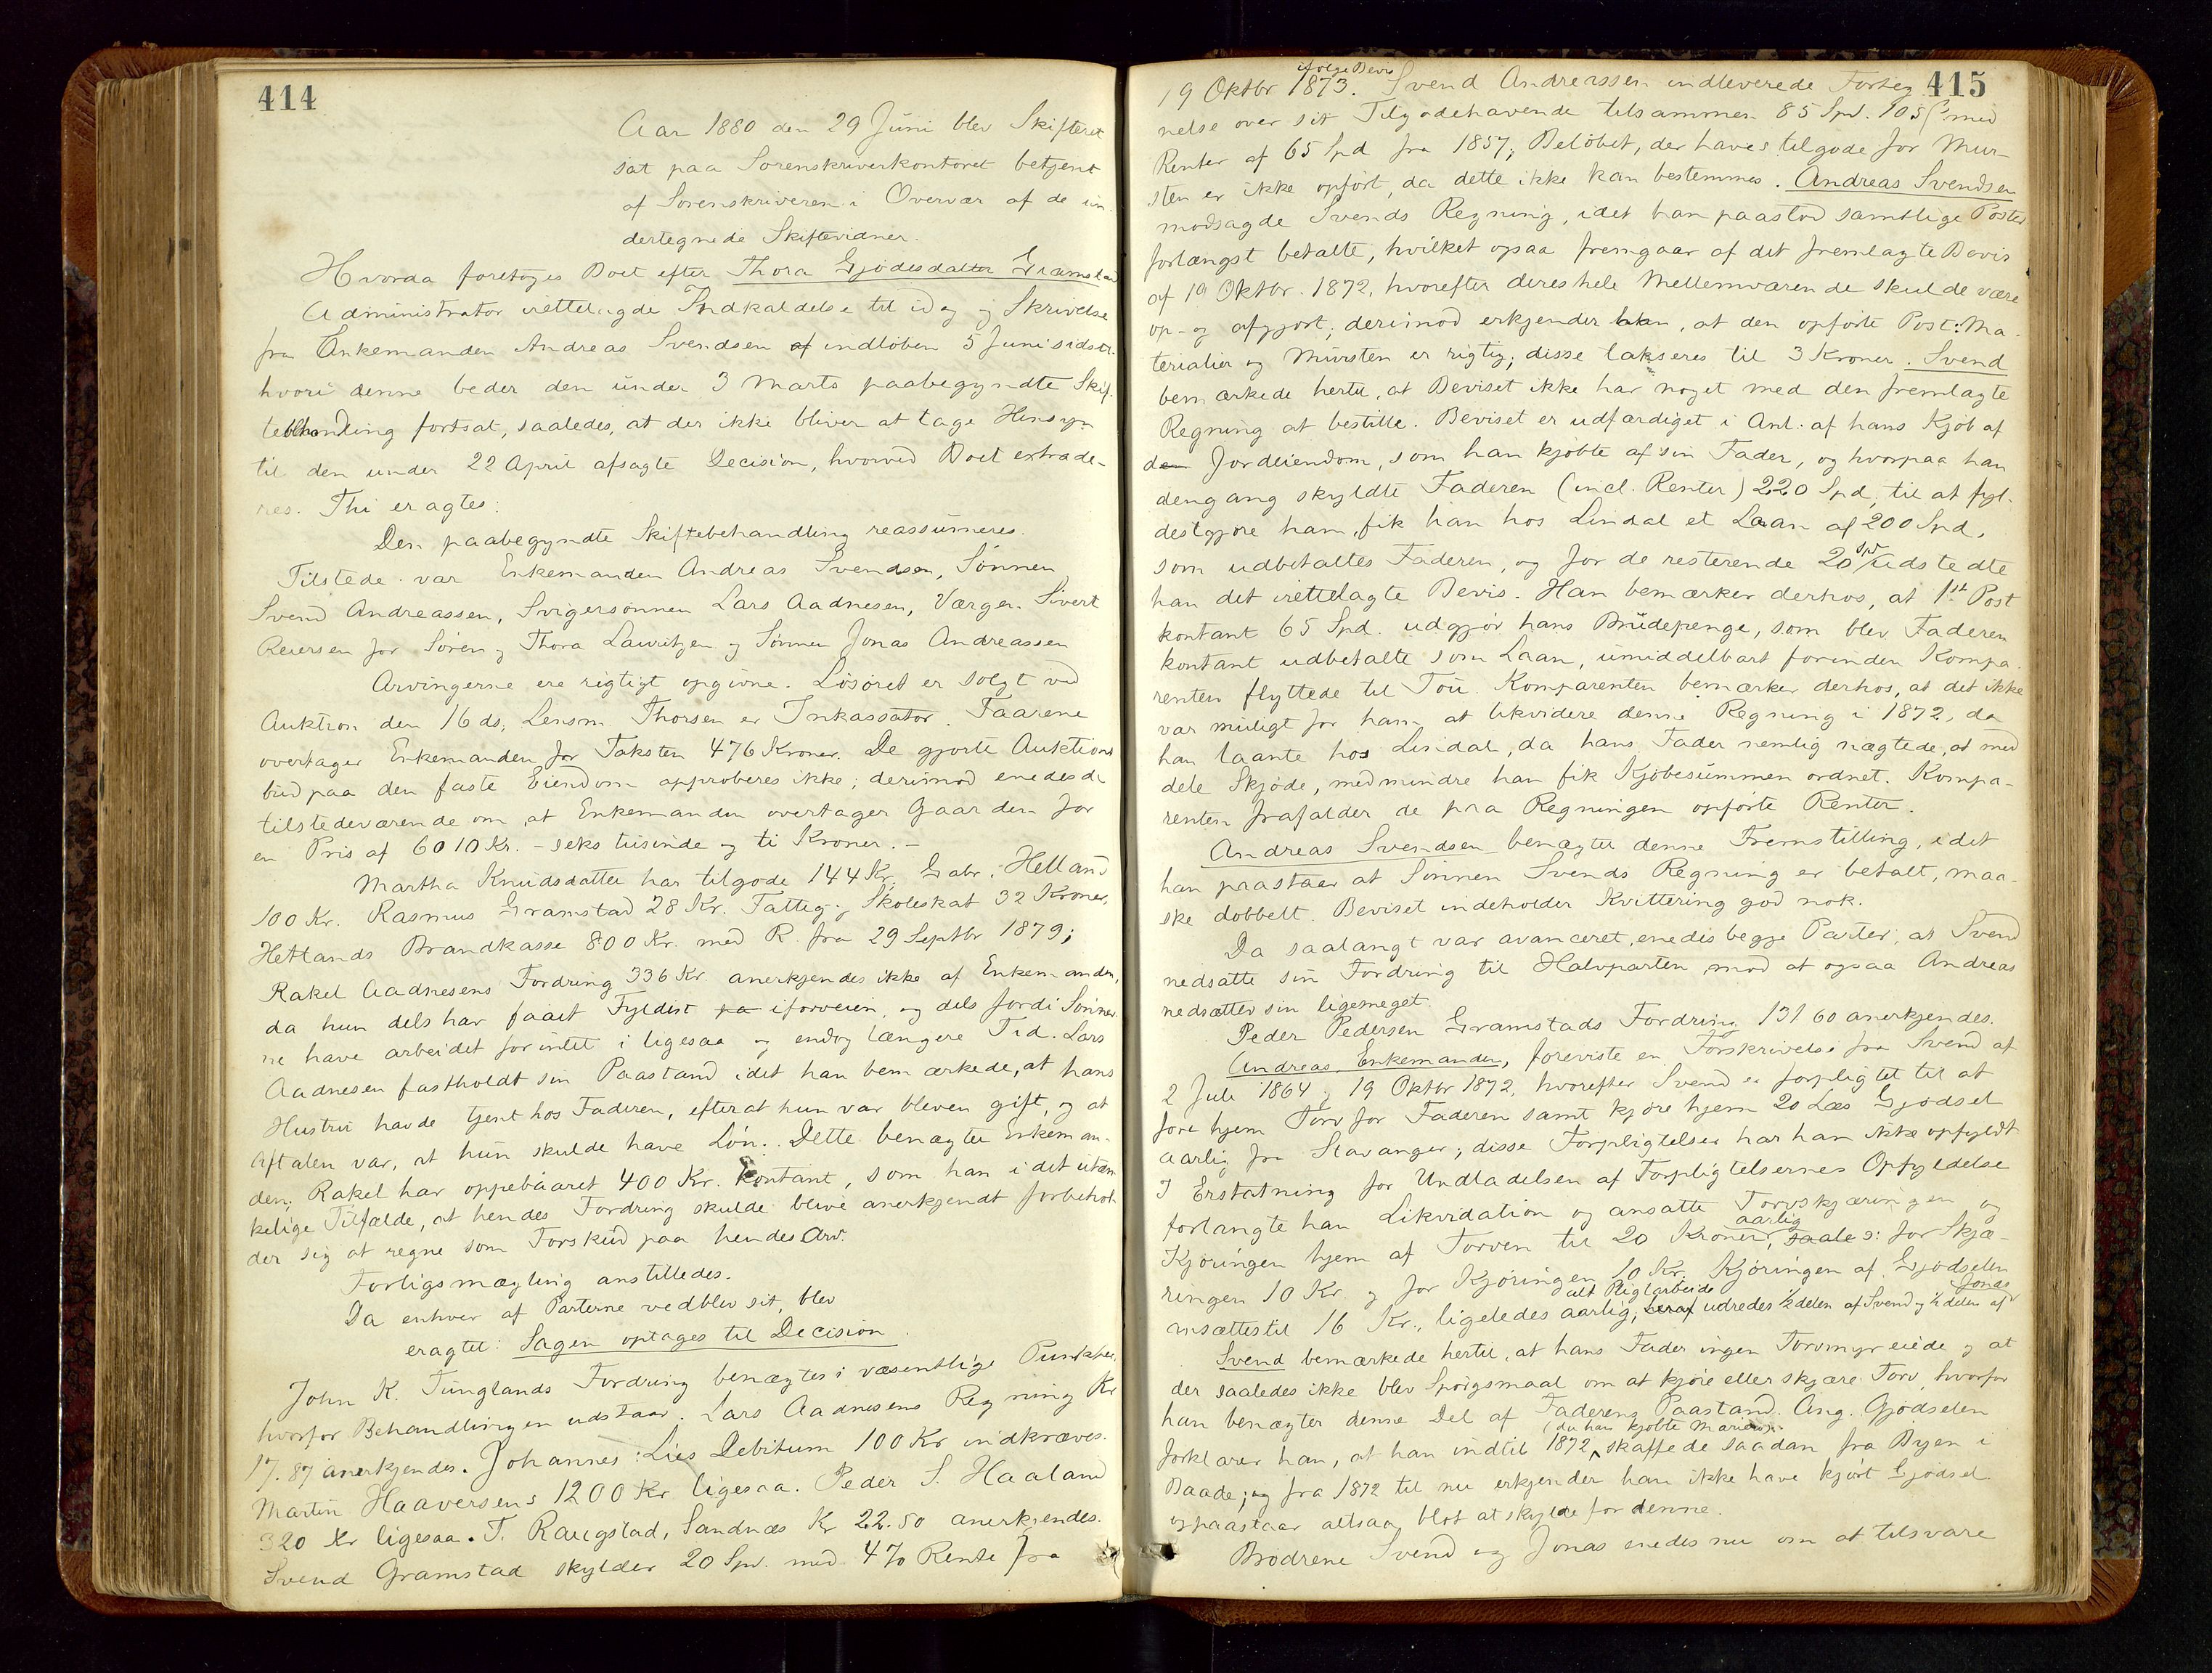 414
Aar 1880 den 29 Juni blev Skifteret
sat paa Sorenskriverkontoret betjent
af Sorenskriveren i Overvær af de un-
dertegnede Skiftevidner.
Hvorda foretoges Boet efter Thora Gjødesdatter Gramstad
Administrator irettelagde Indkaldelse til idag og Skrivelse
fra Enkemanden Andreas Svendsen af indløben 5 Juni sidstl.
hvori denne beder den under 3 Marts paabegyndte Skif-
tebehandling fortsat, saaledes, at der ikke bliver at tage Hensyn
til den under 22 April afsagte Decision, hvorved Boet extrade-
res. Thi eragtes:
Den paabegyndte Skiftebehandling reassumeres.
Tilstede var Enkemanden Andreas Svendsen, Sønnen
Svend Andreassen, Svigersønnen Lars Aadnesen, Værgen Sivert
Reiersen for Søren og Thora Lauritzen og Sønnen Jonas Andreassen
Arvingerne ere rigtigt opgivne. Løsøret er solgt ved
Auktion den 16 ds, Lensm Thorsen er Inkassator. Faarene
overtager Enkemanden for Taksten 476 Kroner. De gjorte Auktions
bud paa den faste Eiendom approberes ikke; derimod enedes de
tilstedeværende om, at Enkemanden overtager Gaarden for
en Pris af 6010 Kr. - seks tusinde og ti Kroner. -
Martha Knudsdatter har tilgode 144 Kr, Gabr. Helland
100 Kr. Rasmus Gramstad 28 Kr. Fattig- og Skoleskat 32 Kroner,
Hetlands Brandkasse 800 Kr. med R. fra 29 Septbr 1879;
Rakel Aadnesens Fordring 336 Kr. anerkjendes ikke af Enkemanden,
da hun dels har faaet Fyldest pa iforveien, og dels fordi Sønner-
ne have arbeidet for intet i ligesaa og endog længere Tid. Lars
Aadnesen fastholdt sin Paastand idet han bemærkede, at hans
Hustru havde tjent hos Faderen, efterat hun var bleven gift, og at
Aftalen var, at hun skulde have Løn. Dette benægter Enkeman-
den; Rakel har oppebaaret 400 Kr. kontant, som han i det utæn-
kelige Tilfælde, at hendes Fordring skulde blive anerkjendt forbehol-
der sig at regne som Forskud paa hendes Arv.
Forligsmægling anstilledes.
Da enhver af Parterne vedblev sit, blev
eragtet: Sagen optages til Decision.
John K. Tunglands Fordring benægtes i væsentlige Punkter,
hvorfor Behandlingen udstaar. Lars Aadnesens Regning Kr
17.87 anerkjendes. Johannes Lies Debitum 100 Kr indkræves.
Martin Haaversens 1200 Kr ligesaa. Peder S. Haaland
320 Kr ligesaa. T. Raugstad, Sandnæs Kr 22.50 anerkjendes.
Svend Gramstad skylder 20 Spd. med 4% Rente fra
415
ifølge Bevis
19 Oktbr 1873. Svend Andreassen indleverede Forteg-
nelse over sit Tilgodehavende tilsammen 85 Spd. 105 ß med
Renter af 65 Spd fra 1857; Beløbet, der haves tilgode for Mur-
sten er ikke opført, da dette ikke kan bestemmes. Andreas Svendsen
modsagde Svends Regning, idet han paastod samtlige Poster
forlængst betalte, hvilket ogsaa fremgaar af det fremlagte Bevis
af 19 Oktbr. 1872, hvorefter deres hele Mellemværende skulde være
op- og afgjort; derimod erkjender han, at den opførte Post: Ma-
terialier og Mursten er rigtig; disse takseres til 3 Kroner. Svend
bemærkede hertil, at Beviset ikke har noget med den fremlagte
Regning at bestille. Beviset er udfærdiget i Anl. af hans Kjøb af
den Jordeiendom, som han kjøbte af sin Fader, og hvorpaa han
dengang skyldte Faderen (incl. Renter) 220 Spd; til at fyl-
destgjøre ham, fik han hos Lindal et Laan af 200 Spd,
som udbetaltes Faderen, og for de resterende 20 Spd udstedte
han det irettelagte Bevis. Han bemærker derhos, at 1ste Post
kontant 65 Spd. udgjør hans Brudepenge, som blev Faderen
kontant udbetalte som Laan, umiddelbart forinden Kompa-
renten flyttede til Tou. Komparenten bemærker derhos, at det ikke
var muligt for ham at likvidere denne Regning i 1872, da
han laante hos Lindal, da hans Fader nemlig nægtede, at med
dele Skjøde, medmindre han fik Kjøbesummen ordnet. Kompa-
renten frafalder de paa Regningen opførte Renter.
Andreas Svendsen benægter denne Fremstilling, idet
han paastaar at Sønnen Svends Regning er betalt, maa-
ske dobbelt. Beviset indeholder Kvittering god nok.
Da saalangt var avanceret, enedes begge Parter, at Svend
nedsatte sin Fordring til Halvparten, mod at ogsaa Andreas
nedsætter sin ligemeget.
Peder Pedersen Gramstads Fordring 131 60 anerkjendes.
Andreas, Enkemanden, foreviste en Forskrivelse fra Svend af
2 Juli 1864 og 19 Oktbr 1872, hvorefter Svend er forpligtet til at
føre hjem Torv for Faderen samt kjøre hjem 20 Læs Gjødsel
aarlig fra Stavanger; disse Forpligtelser har han ikke opfyldt
I Erstatning for Undladelsen af Forpligtelsernes Opfyldelse
forlangte han Likvidation og ansatte Torvskjæringen og
Kjøringen hjem af Torven til 20 Kroner aarlig, saale ɔ: for Skjæ-
ringen 10 Kr. og for Kjøringen 10 Kr. Kjøringen af Gjødselen
alt Pligtarbeide Jonas
ansættes til 16 Kr., ligeledes aarlig, heraf udredes ½ delen af Svend og ½ delen af
Svend bemærkede hertil, at hans Fader ingen Torvmyr eiede og at
der saaledes ikke blev Spørgsmaal om at kjøre eller skjære Torv, hvorfor
han benægter denne Del af Faderens Paastand. Ang. Gjødselen
(da han kjøbte
forklarer han, at han indtil 1872 skaffede saadan fra Byen i
Baade; og fra 1872 til nu erkjender han ikke have kjørt Gjødsel
og paastaar altsaa blot at skylde for denne.
Brødrene Svend og Jonas enedes nu om at tilsvare